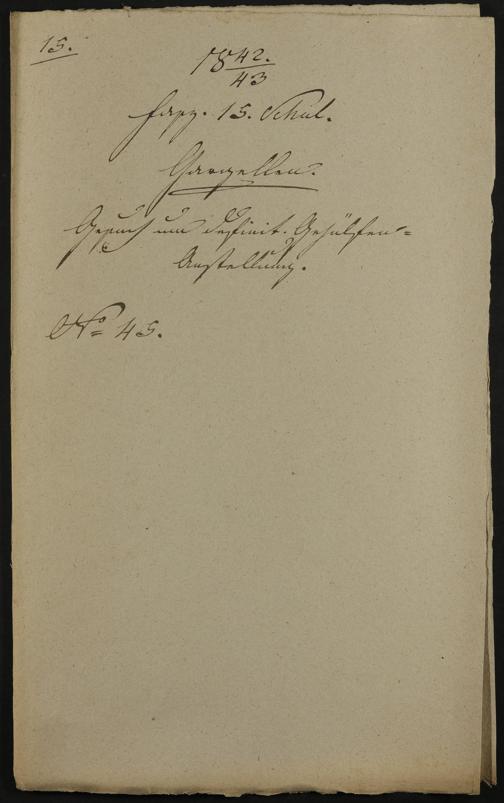 15.
18 42./43
Fasz. 15. Schul.
Gargellen.
Gesuch um definit. Gehülfen-
Anstellung.
No 45.